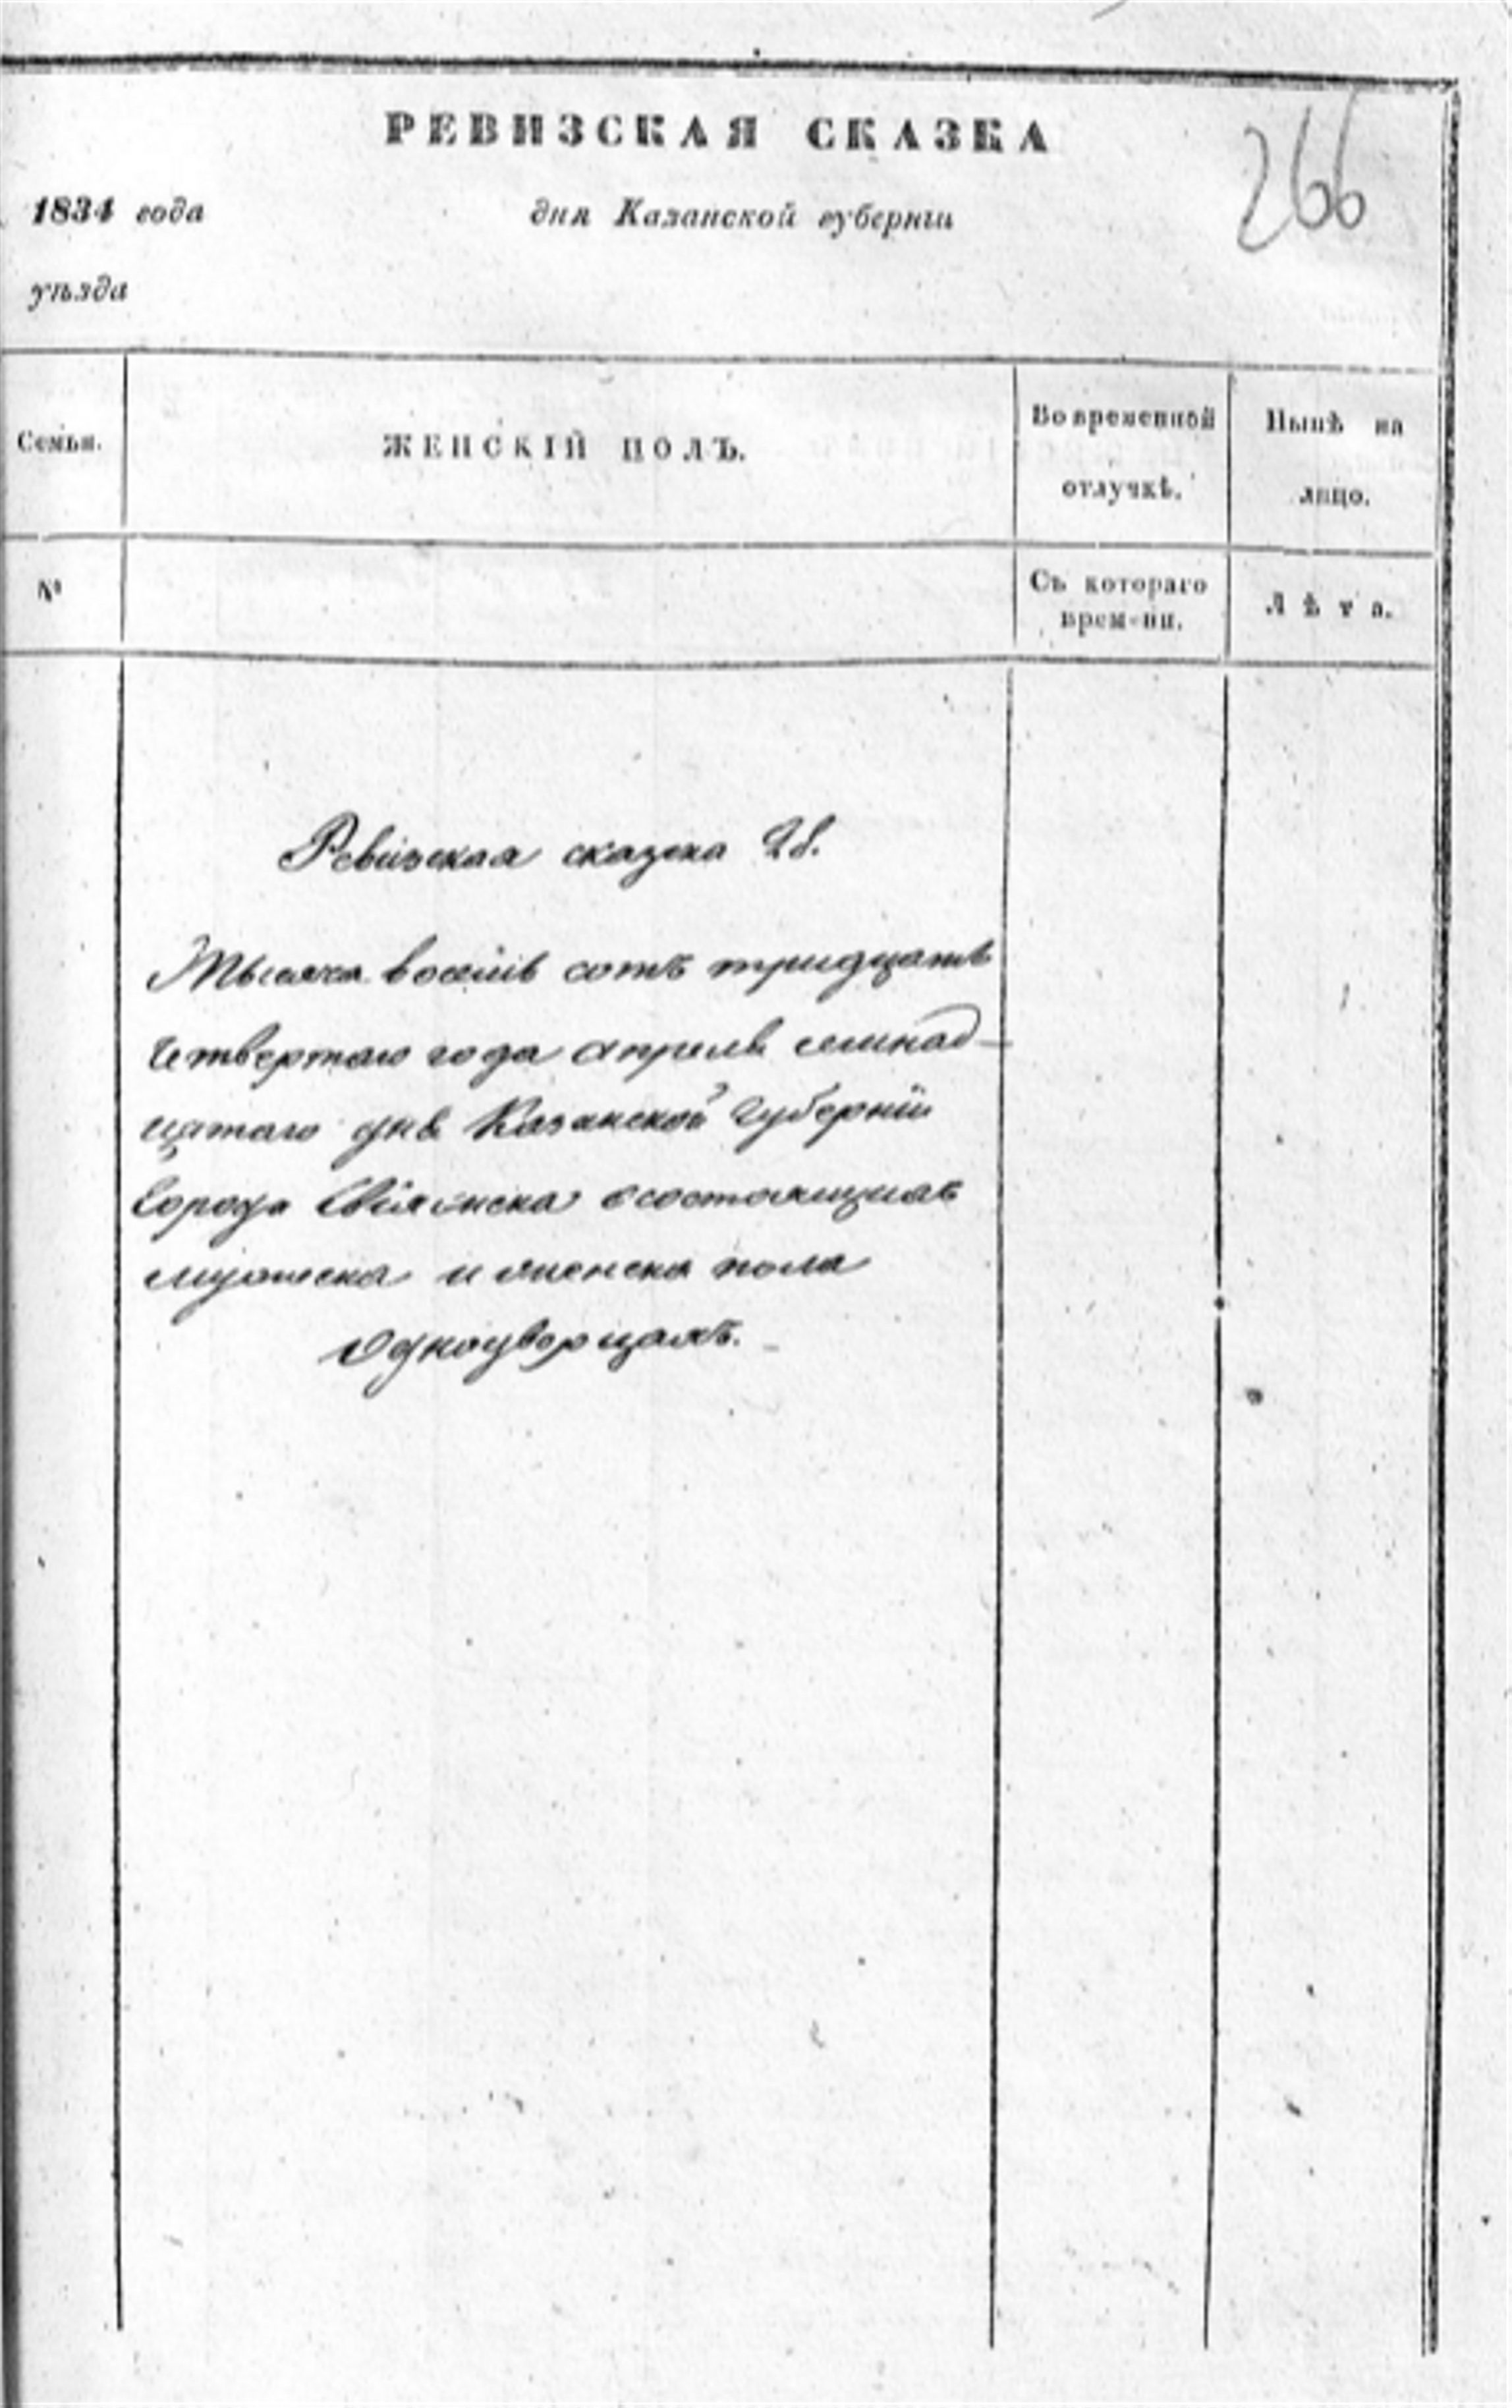 РЕВИЗСКАЯ СКАЗКА
266
1834 года дня Казанской губерніи
уѣзда
Семьи. ЖЕНСКІЙ ПОЛЪ. Во временной отлучкѣ. Нынѣ на лицо.
№ Съ котораго времени. Лѣта.
Ревизская сказка
Тысяча восемь сотъ тридцать
четвертаго года апреля семнад-
цатаго дня Казанской Губерніи
Города Свіяжска о состоящихъ
мужеска и женска пола
однодворцахъ.